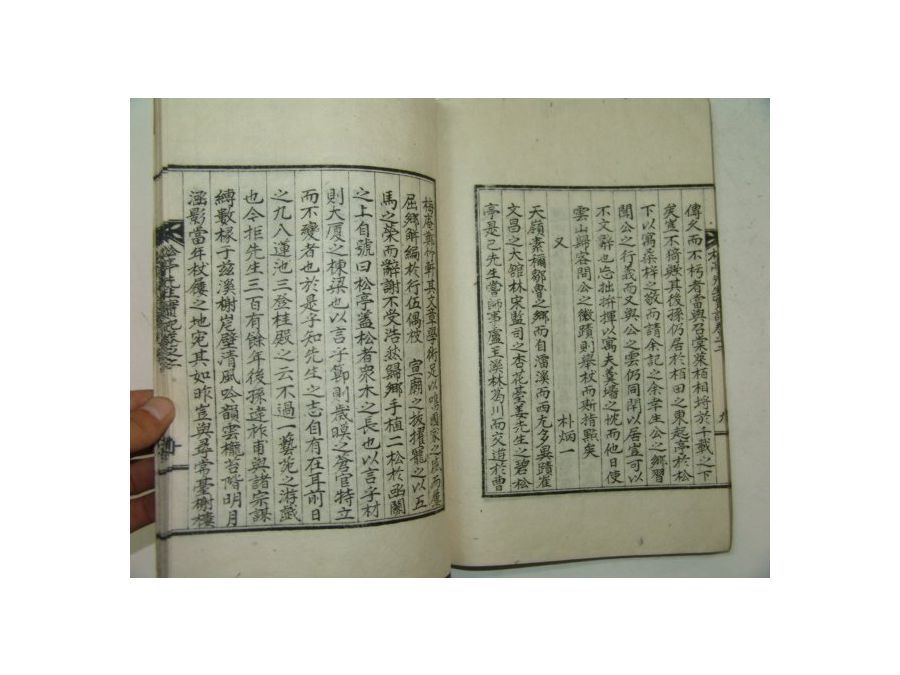 傳久而不朽者當與召棠萊柏相將於千載之下
矣豈不猗歟其後孫仍居於栢田之東起亭於松
下以寓桑梓之敬而請余記之余幸生公之鄕習
聞公之行義而又與公之雲仍同閈以居豈可以
不文辭也忘拙揮以寓夫羹墻之忱而他日使
雲山歸客問公之徽蹟則擧杖而斯指點矣
又 朴炳一
天嶺素稱鄒魯之鄕而自濡溪而西尤多異蹟崔
文昌之大館林宋監司之杏花臺姜先生之碧松
亭是已先生嘗師事盧玉溪林葛川而交道於曹
梅庵鄭竹軒其文章學術足以鳴國家之盛而蠖
屈鄕解編於行伍偶被 宣廟之拔擢寵之以五
馬之榮而辭謝不受浩然歸鄕手植二松於函關
之上自號曰松亭盖松者衆木之長也以言乎材
則大厦之棟梁也以言乎節則歲暯之蒼官特立
而不變者也於是乎知先生之志自有在耳前日
之九入蓮池三登桂殿之云不過一藝苑之游戱
也今拒先生三百有餘年後孫達祚甫與諸宗謀
縛數椽于玆溪榭岸壁淸風吟韻雲櫳苔階明月
涵影當年杖屨之地宛其如昨豈與尋常臺榭樓
松亭先生實記卷之二